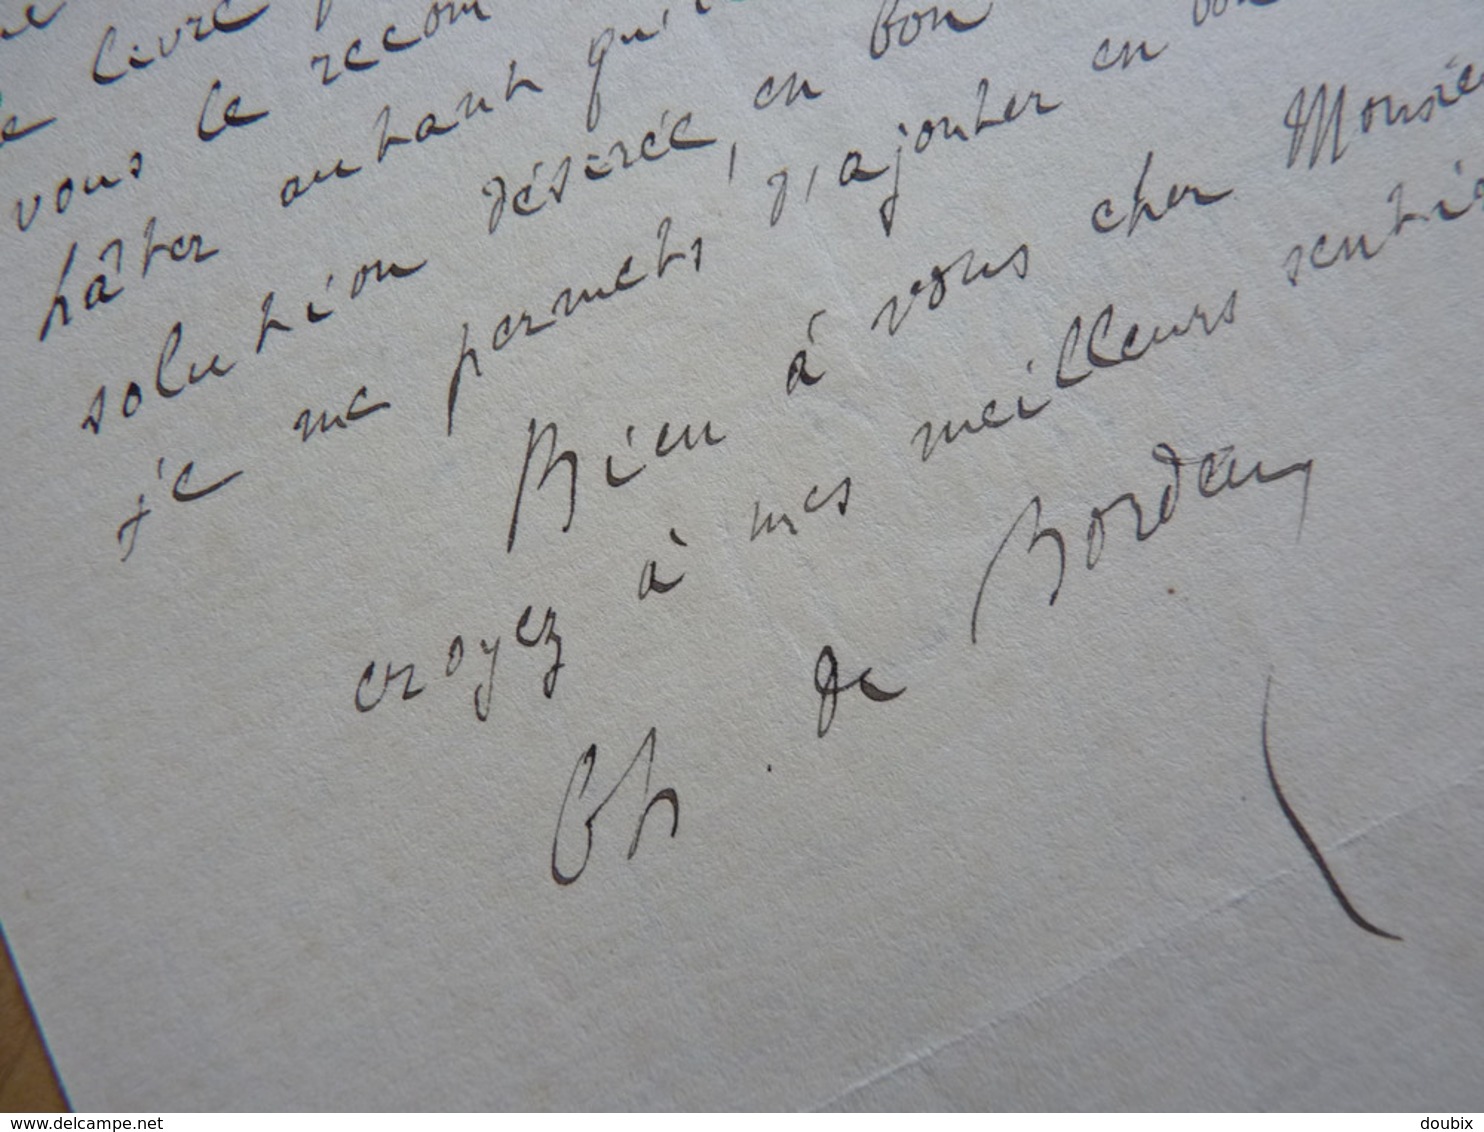 livre
vous le recom
hâter autant qu'i
solution désirée, en bon
je me permets d'ajouter en bon
Bien à vous cher Monsie
croyez à mes meilleurs senti
Ch. de Bordeu
www.delcampe.net
doubix